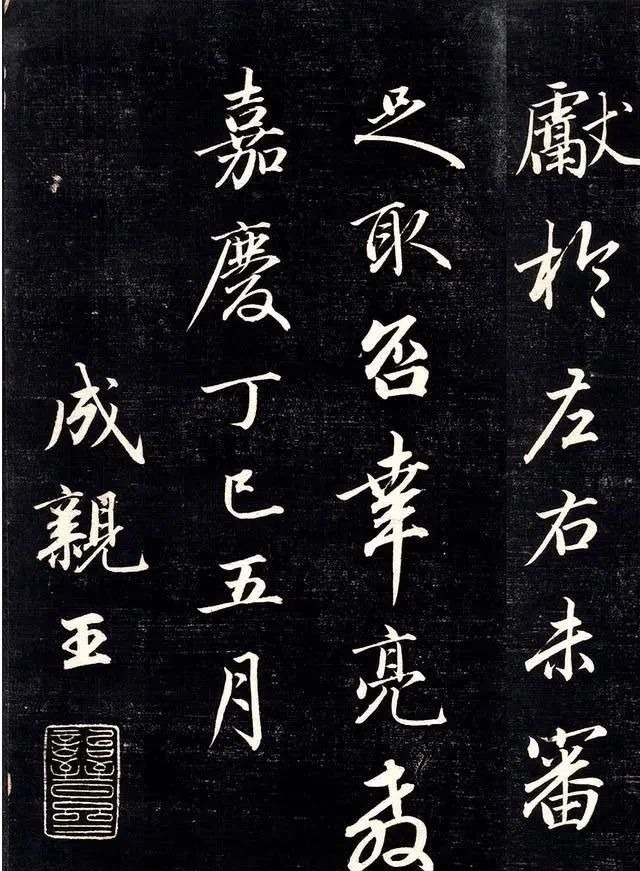 獻於左右未審
足取否幸亮教
嘉慶丁巳五月
成親王